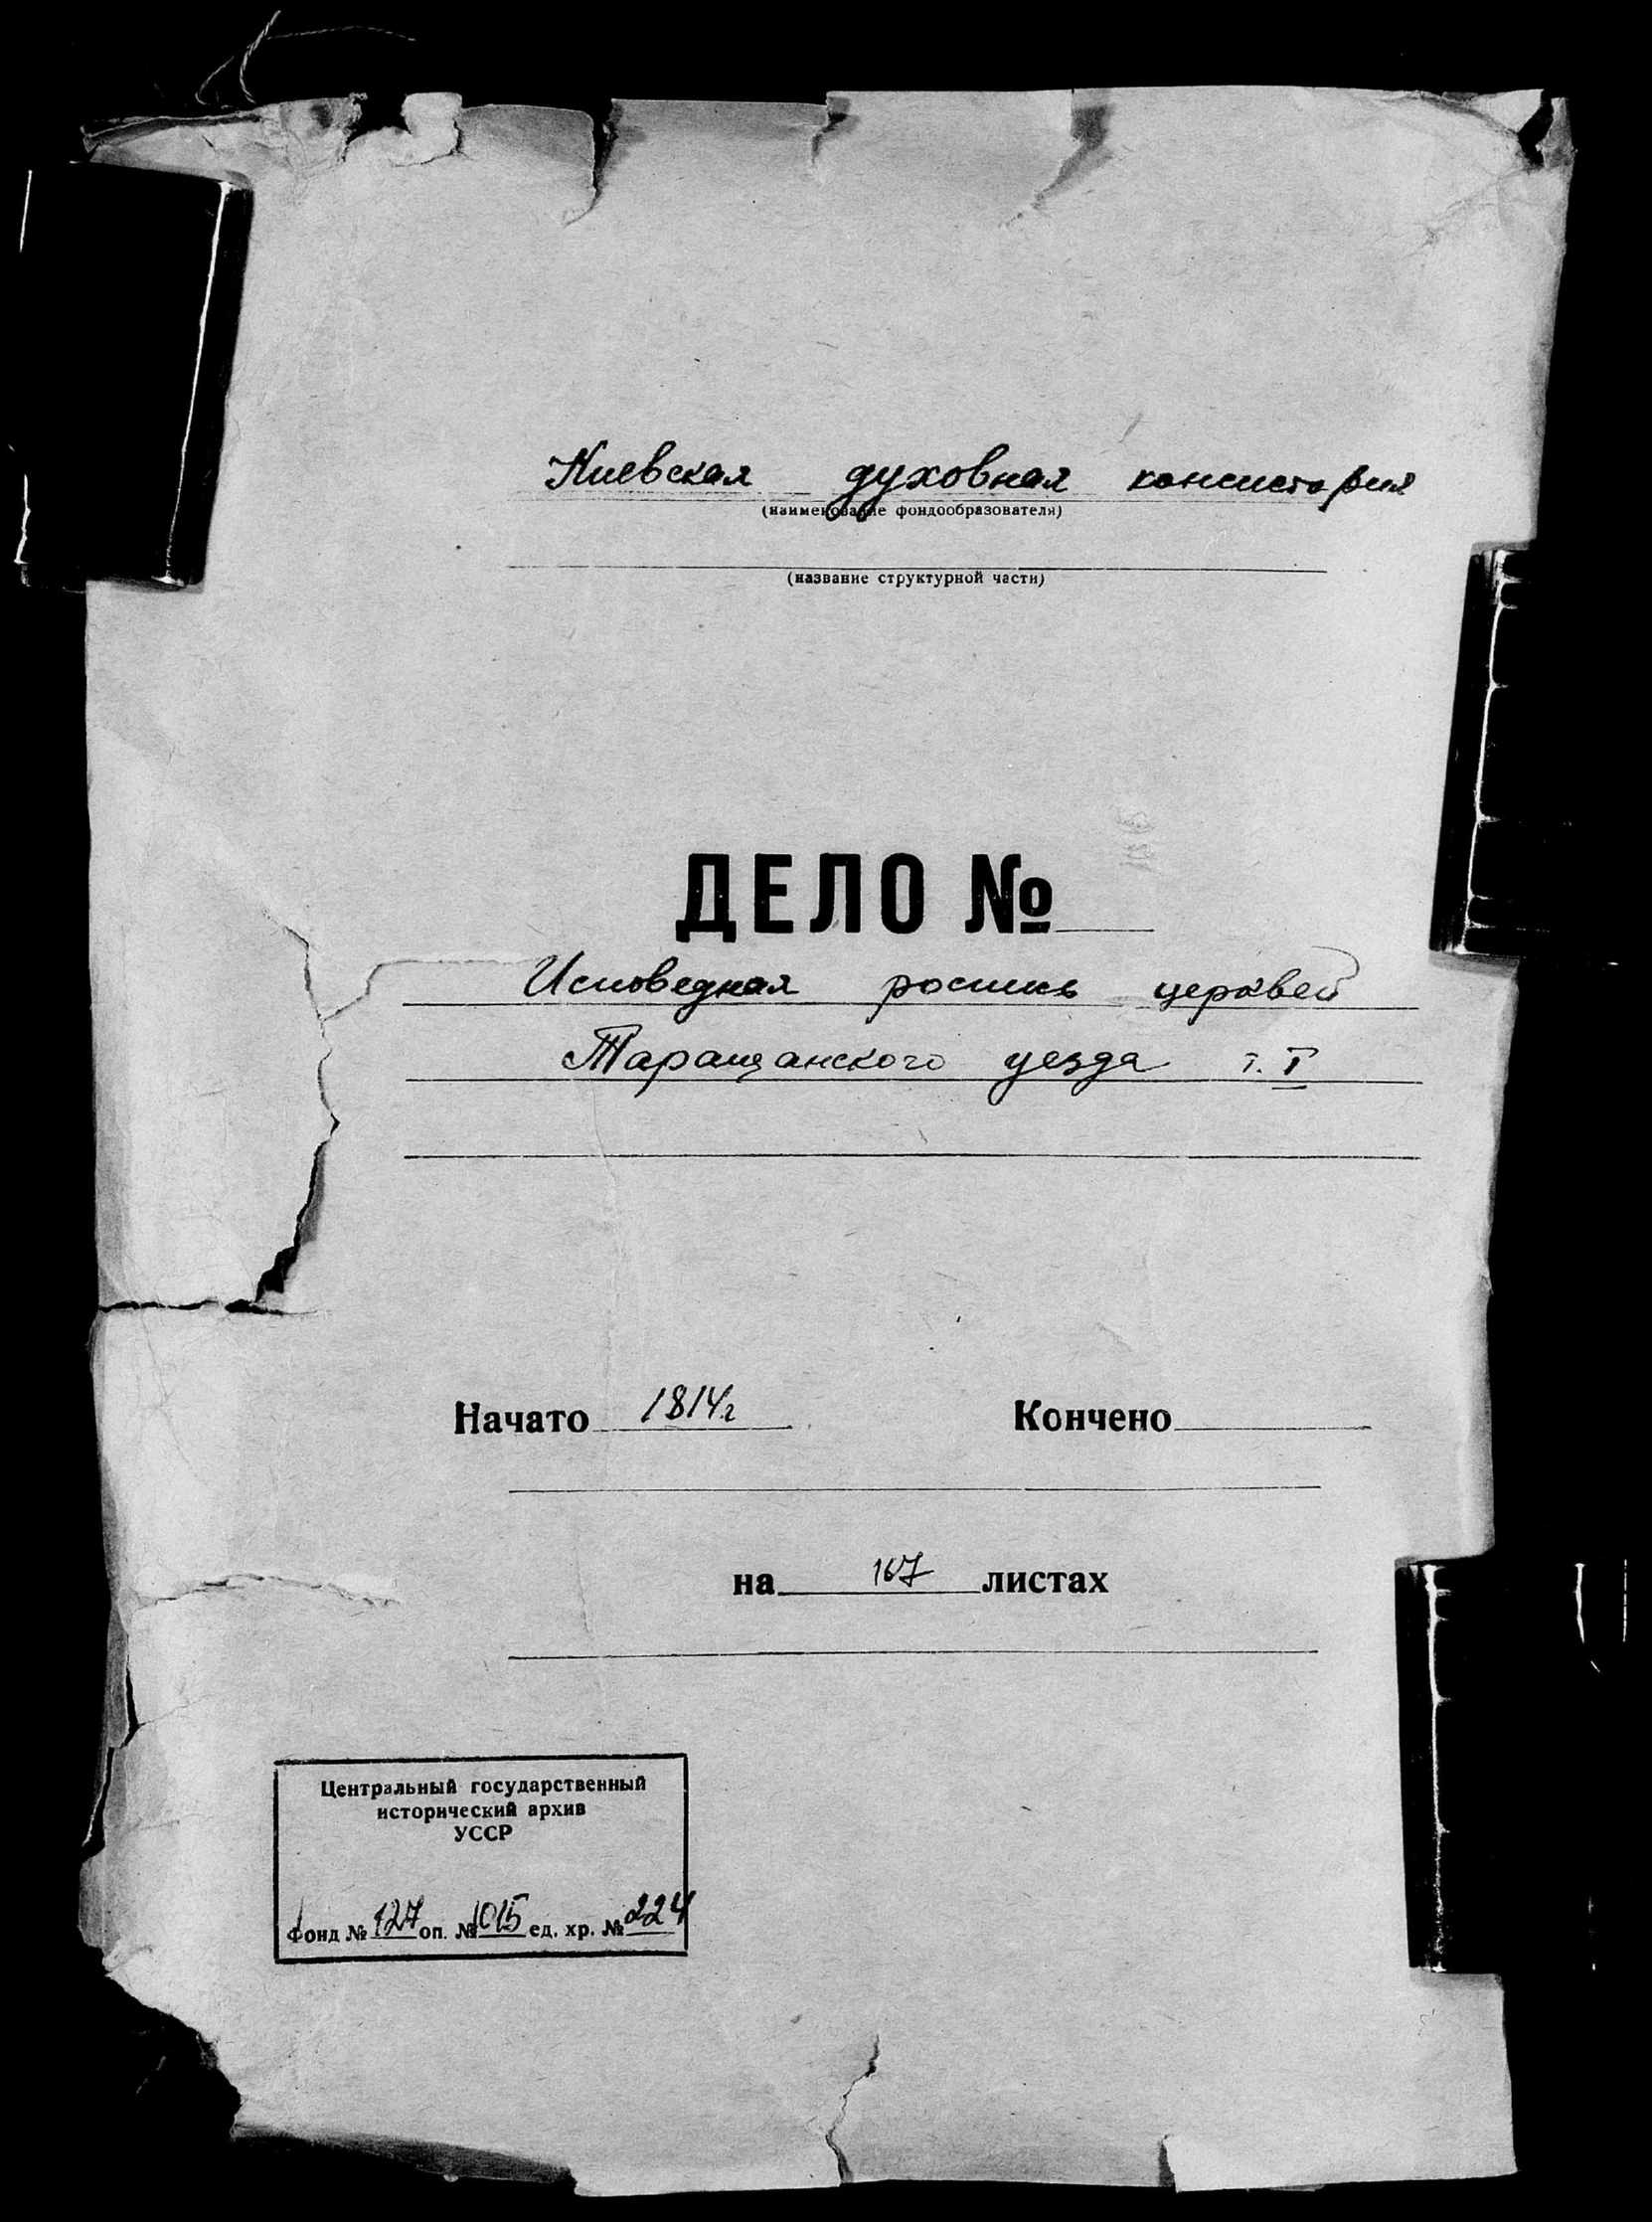 Киевская духовная консистория
(наименование фондообразователя)
(название структурной части)
ДЕЛО №
Исповедная роспись церквей
Таращанского уезда т. I
Начато 1814г Кончено
на 167 листах
Центральный государственный
исторический архив
УССР
Фонд № 127 оп. № 1015 ед. хр. № 224